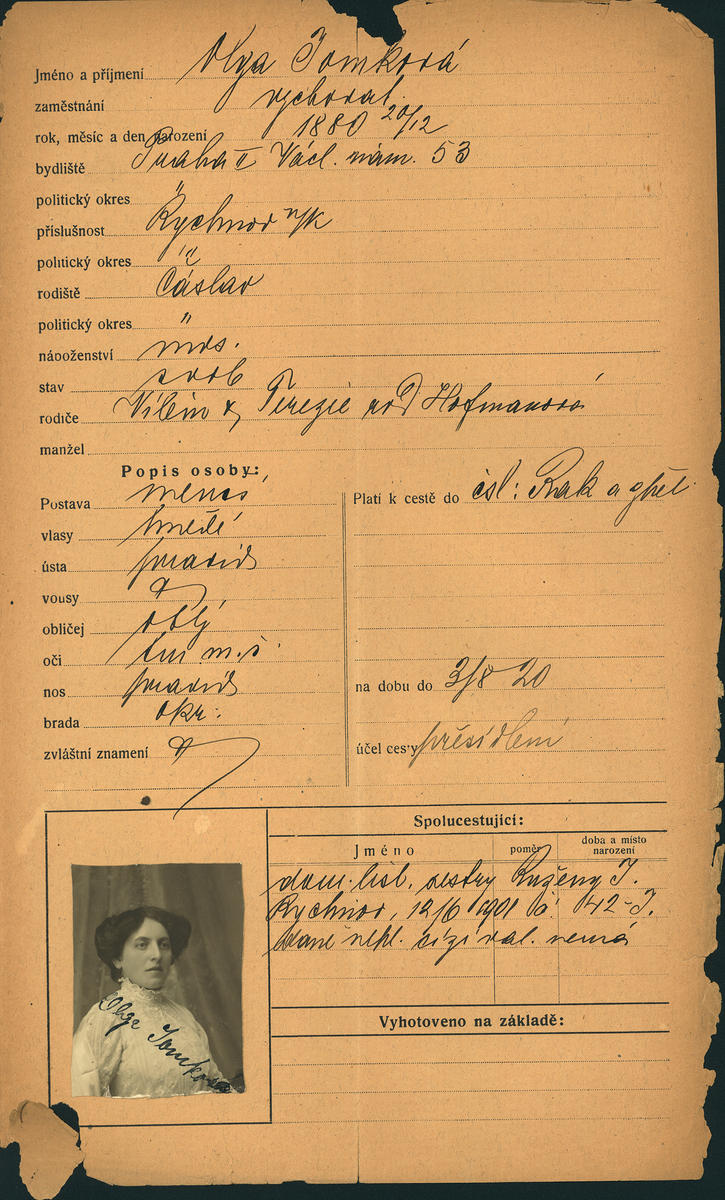 Jméno a příjmení Olga Tomková
zaměstnání vychovat.
rok, měsíc a den narození 1880 20/12
bydliště Praha II Václ. nám. 53
politický okres "
příslušnost Rychnov n/K
politický okres "
rodiště Čáslav
politický okres "
náboženství mos.
stav svob
rodiče Vilém & Terezie roz Hofmanová
manžel
Popis osoby:
Postava menší
vlasy hnědé
ústa pravid
vousy
obličej oblý
oči tm. m. š.
nos pravid
brada okr.
zvláštní znamení
Platí k cestě do čsl: Rak a zpět
na dobu do 3/8 20
účel cesty přesídlení
Spolucestující:
Jméno poměr doba a místo narození
dom. list. sestry Ruženy T.
Rychnov, 12/6 1901 č. 42-T.
daně nekl. cizí val. nemá
Vyhotoveno na základě:
Olga Tomková